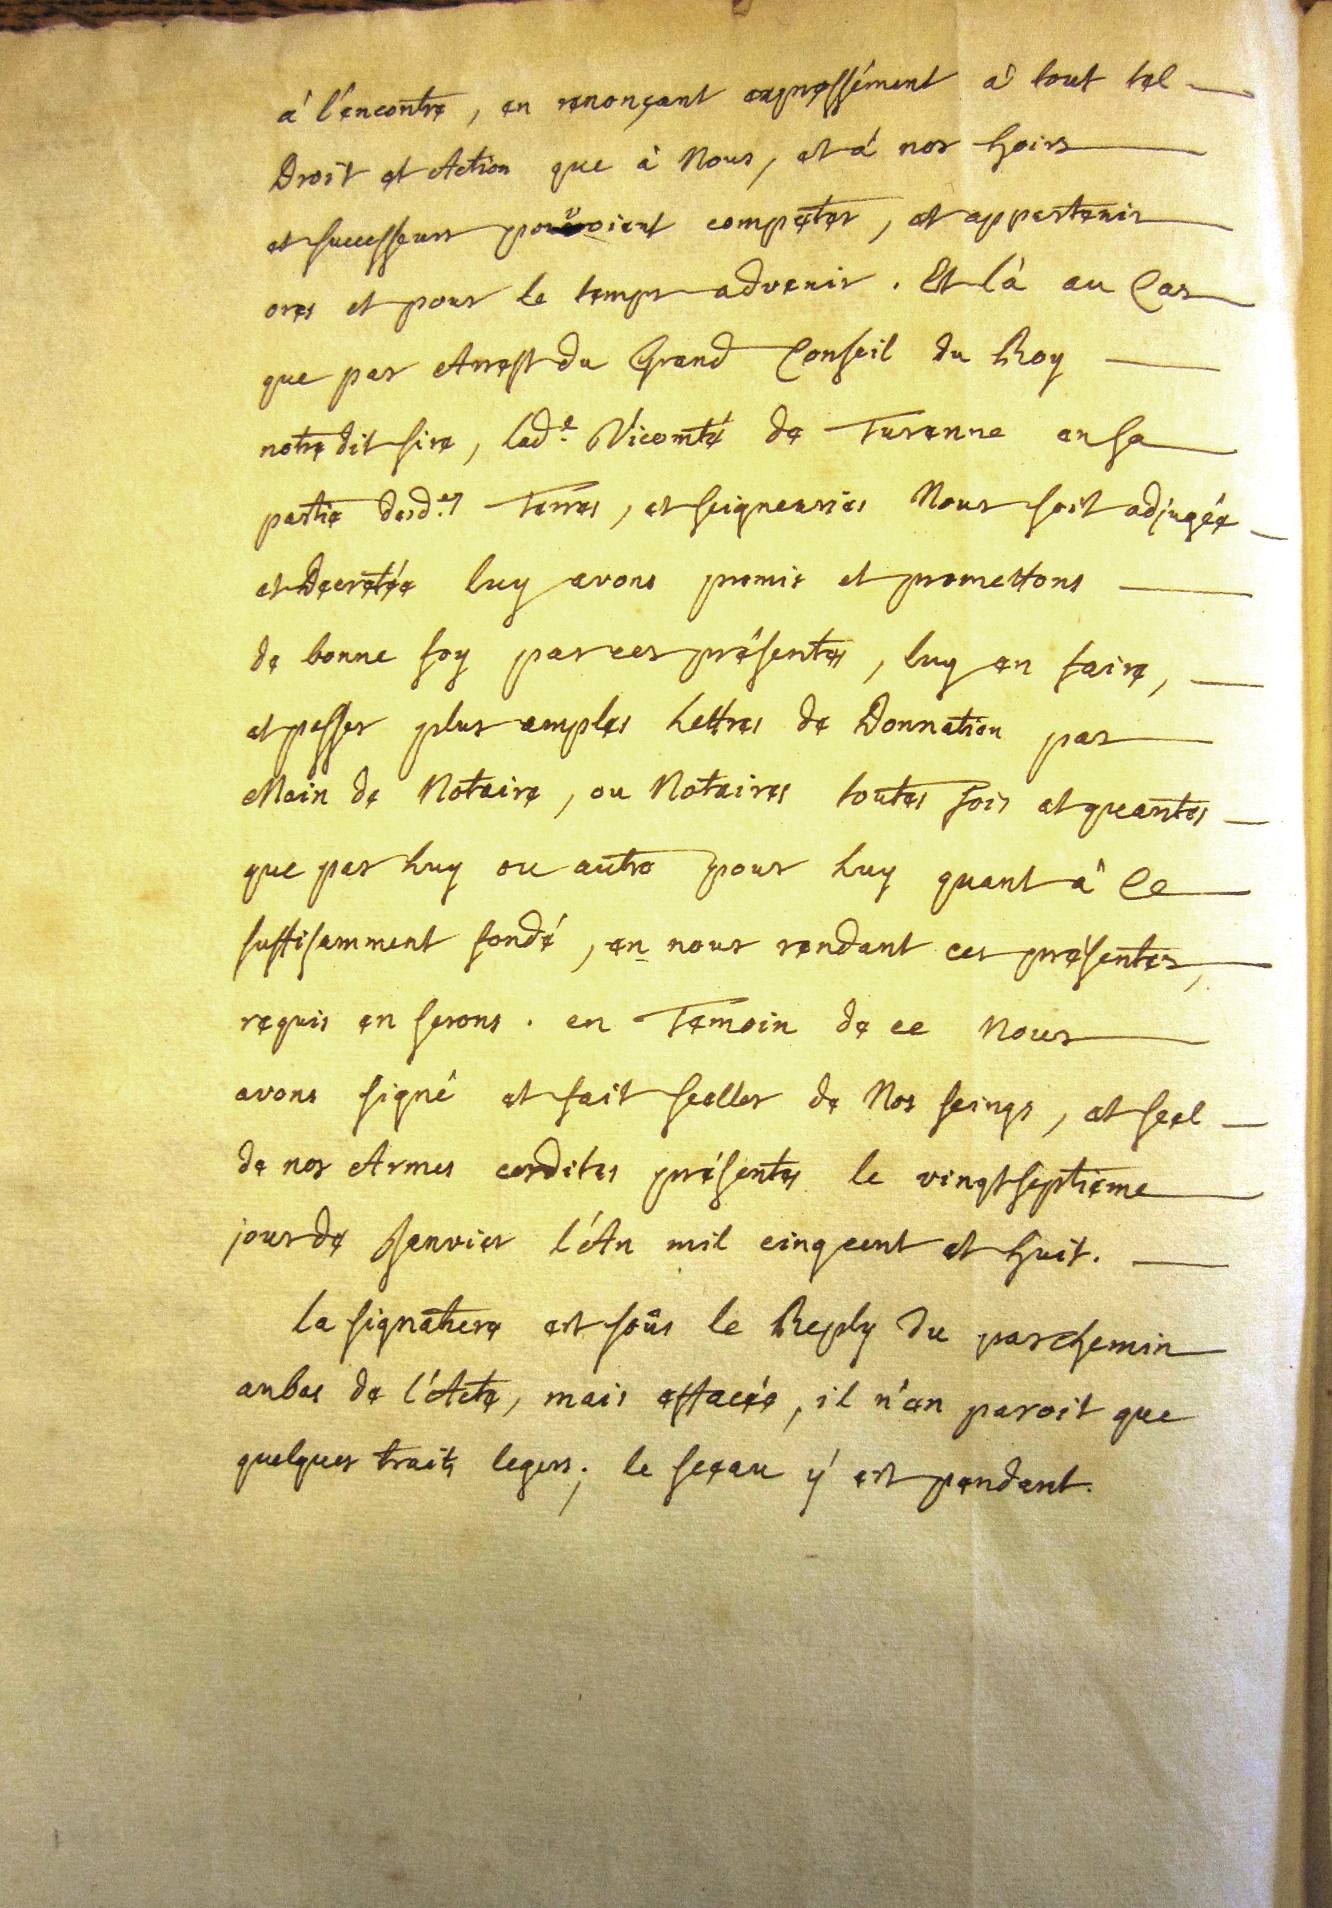 à l'encontre, en renonçant expressément à tout tel
Droit et Action que à Nous, et à nos hoirs
et successeurs pouvoient compéter, et appartenir
ores et pour le temps advenir. Et là au Cas
que par Arrest du Grand Conseil du Roy
notre dit sire, lad.e Vicomté de Turenne en sa
partie desd.es Terres, et seigneuries Nous soit adjugée
et Decretée luy avons promis et promettons
de bonne foy par ces présentes, luy en faire,
et passer plus amples Lettres de Donnation par
Main de Notaire, ou Notaires toutes fois et quantes
que par Luy ou autre pour Luy quant à Ce
suffisamment fondé, en nous rendant ces présentes,
requis en serons. en Temoin de ce Nous
avons signé et fait sceller de Nos seings, et scel
de nos Armes cesdites présentes le vingt septieme
jour de Janvier l'An mil cinq cent et huit.
la signature est sous le Reply du parchemin
au bas de l'Acte, mais effacée, il n'en paroit que
quelques traits legers; le sceau y est pendant.